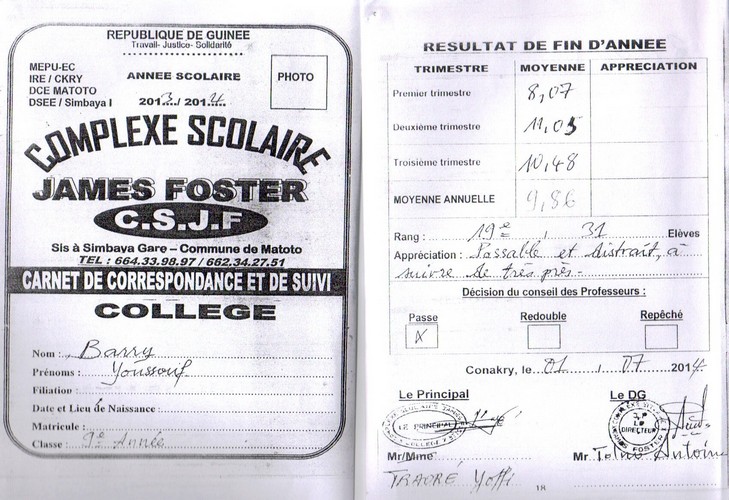 REPUBLIQUE DE GUINEE
Travail- Justice- Solidarité
MEPU-EC
IRE / CKRY
DCE MATOTO
DSEE / Simbaya I
ANNEE SCOLAIRE
2013.../ 2014....
PHOTO
COMPLEXE SCOLAIRE
JAMES FOSTER
C.S.J.F
Sis à Simbaya Gare – Commune de Matoto
TEL : 664.33.98.97 / 662.34.27.51
CARNET DE CORRESPONDANCE ET DE SUIVI
COLLEGE
Nom : Barry
Prénoms : Youssouf
Filiation :
Date et Lieu de Naissance :
Matricule :
Classe : 9e Année
RESULTAT DE FIN D'ANNEE
TRIMESTRE MOYENNE APPRECIATION
Premier trimestre 8,07
Deuxième trimestre 11,05
Troisième trimestre 10,48
MOYENNE ANNUELLE 9,86
Rang : 19e / 31 Elèves
Appréciation : Passable et distrait, à
suivre de très près.-
Décision du conseil des Professeurs :
Passe Redouble Repêché
X
Conakry, le 01 / 07 2014
Le Principal Le DG
LE PRINCIPAL
LE
DIRECTEUR
FOSTER
Mr/Mme Mr Antoine
TRAORÉ
18